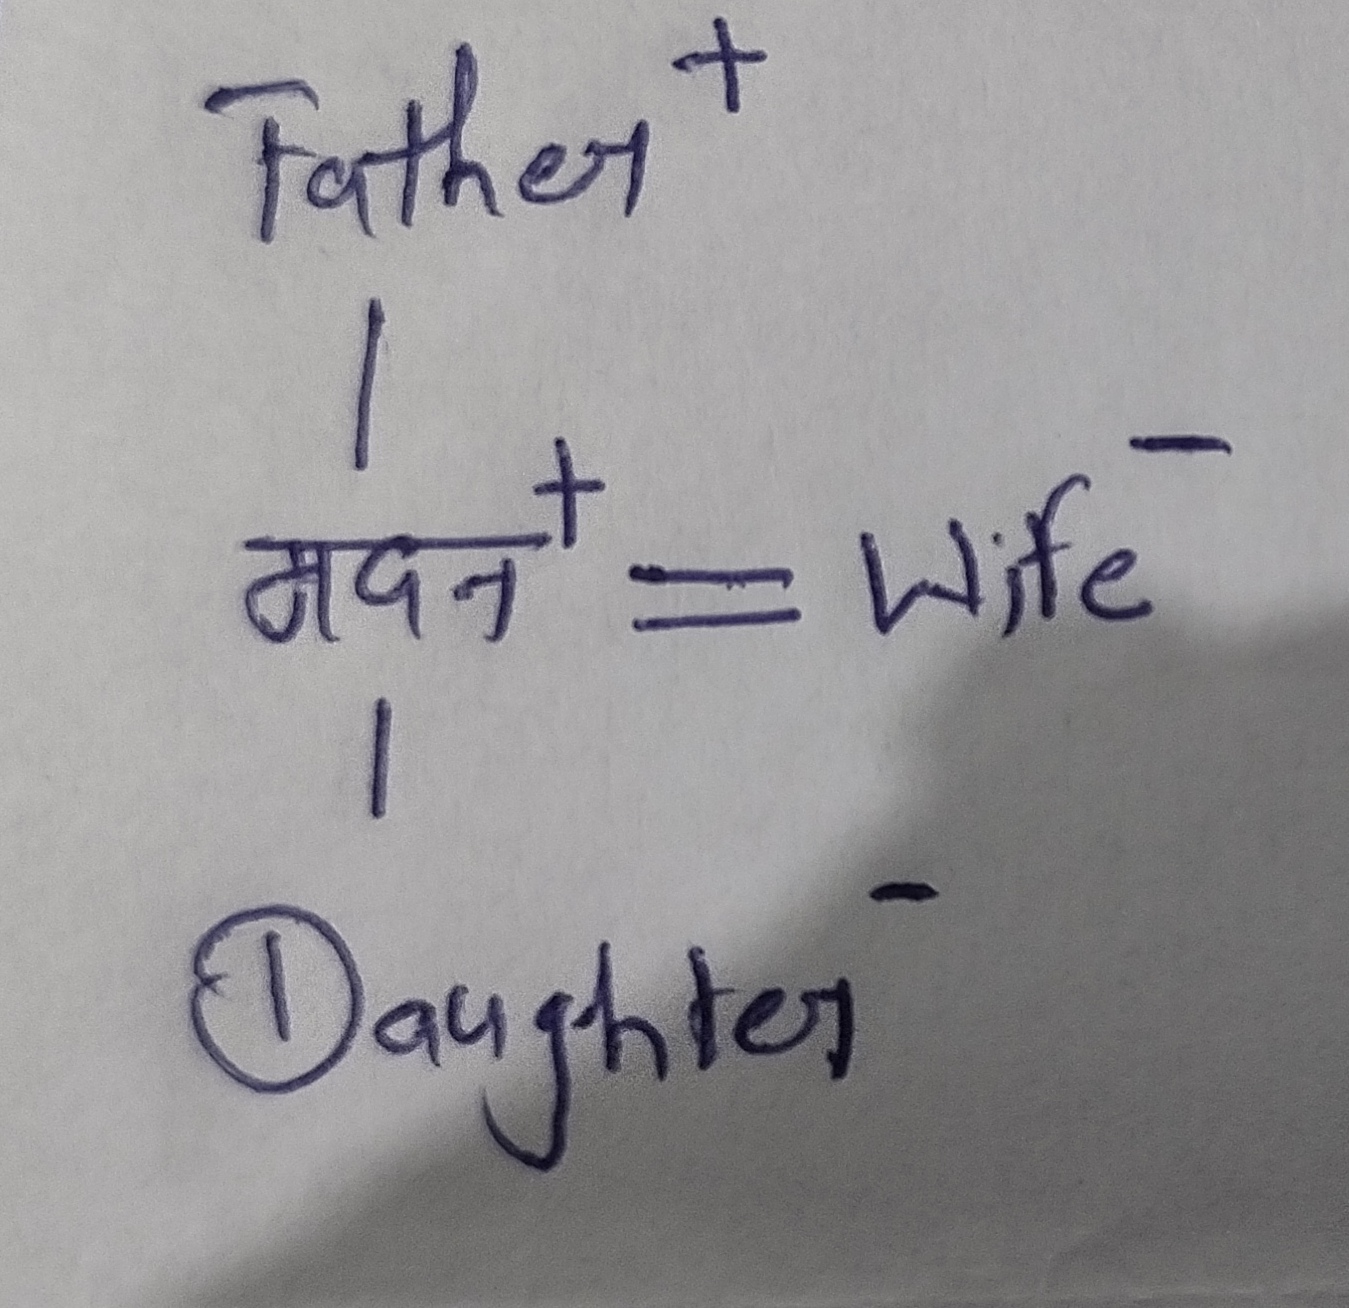 Father +
|
मदन + = Wife -
|
① Daughter -